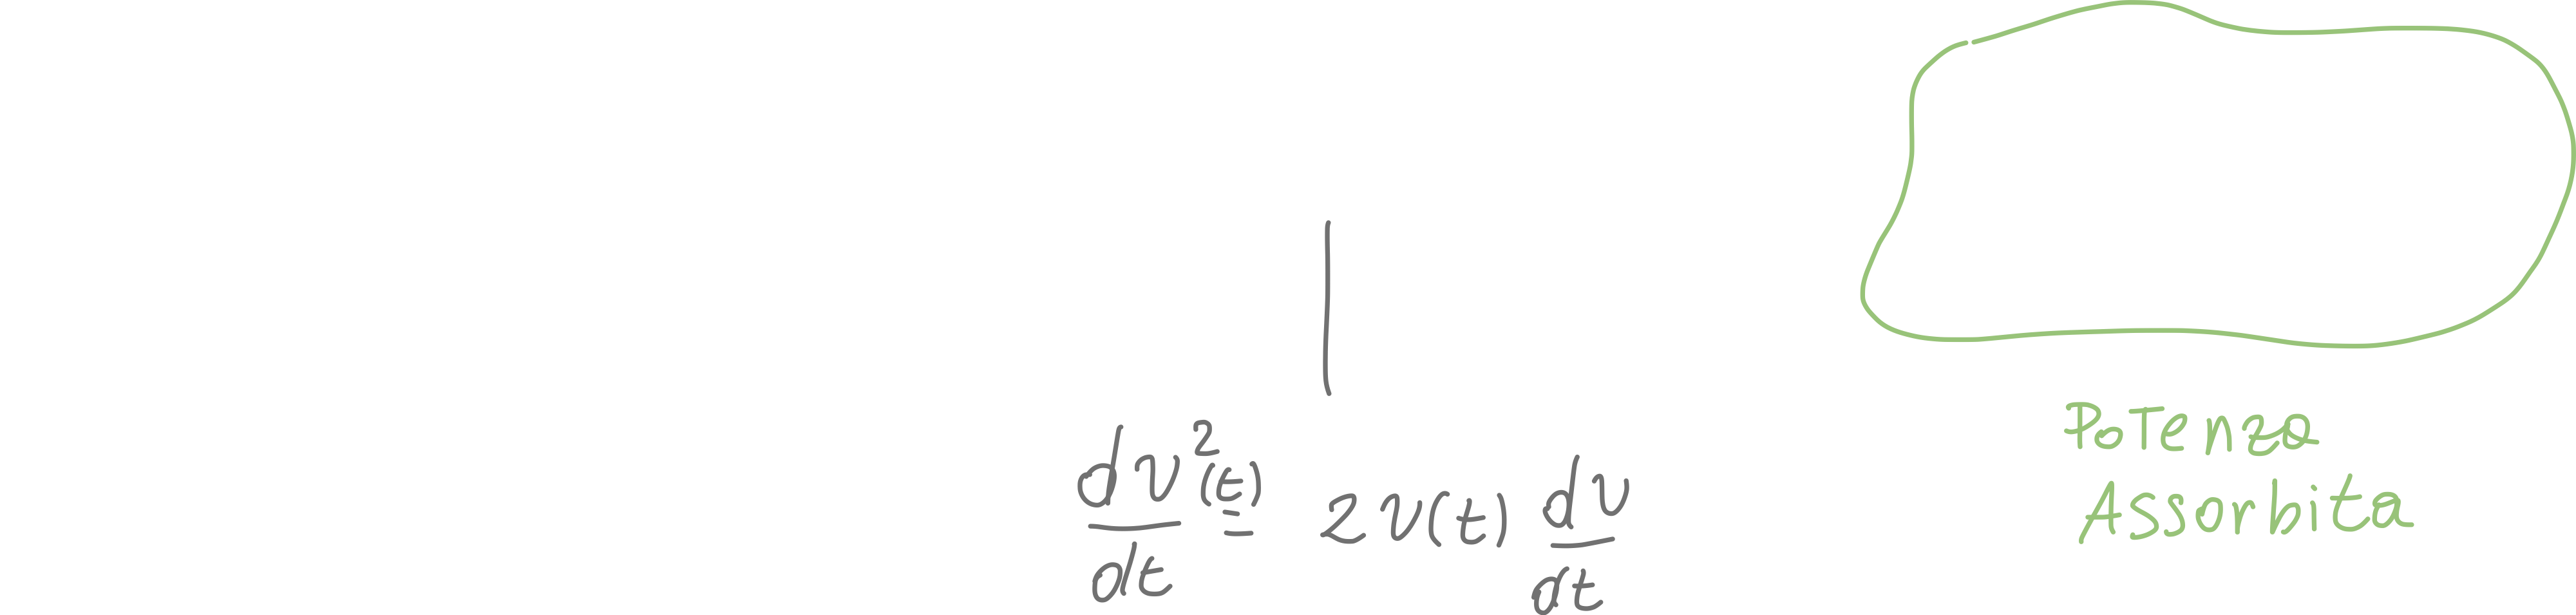 dv²(t)/dt = 2v(t) dv/dt
Potenza
Assorbita